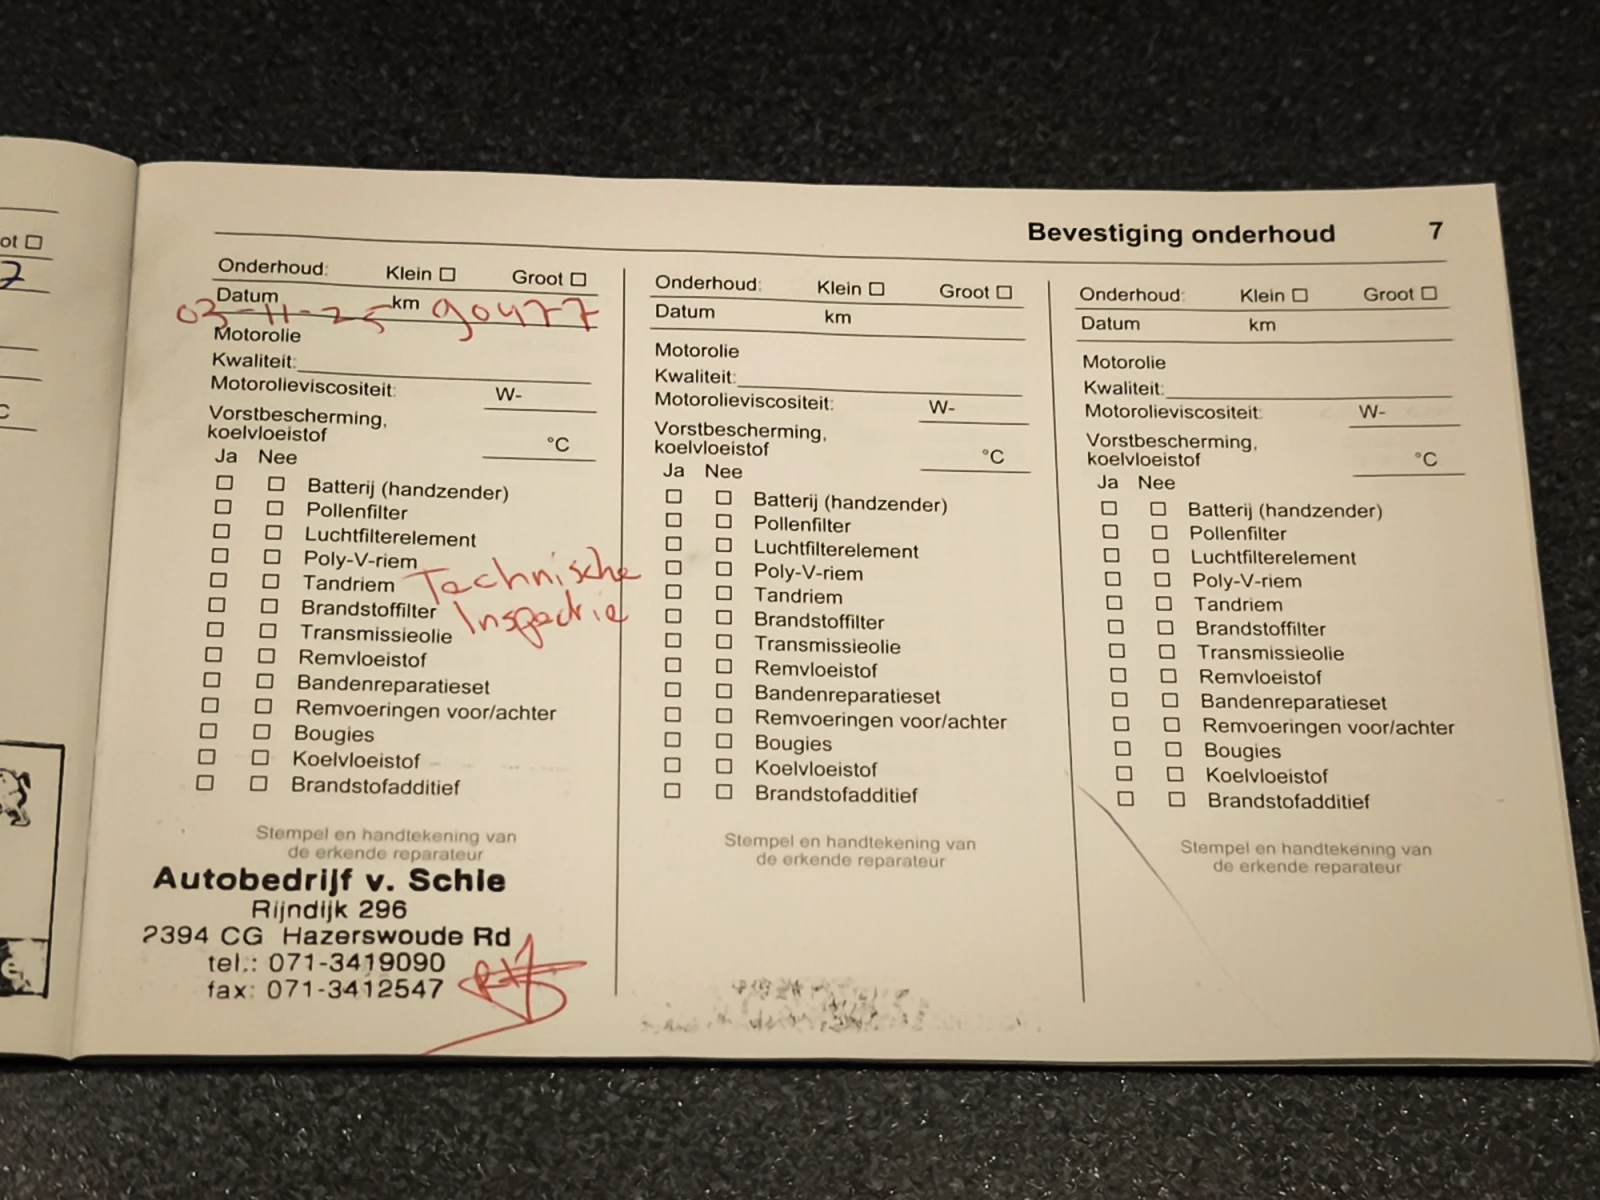 ot
7
C
Bevestiging onderhoud 7
Onderhoud: Klein Groot
Datum 03-11-25 km 90477
Motorolie
Kwaliteit:
Motorolieviscositeit: W-
Vorstbescherming,
koelvloeistof °C
Ja Nee
Batterij (handzender)
Pollenfilter
Luchtfilterelement
Poly-V-riem
Tandriem Technische
Brandstoffilter Inspectie
Transmissieolie
Remvloeistof
Bandenreparatieset
Remvoeringen voor/achter
Bougies
Koelvloeistof
Brandstofadditief
Stempel en handtekening van
de erkende reparateur
Autobedrijf v. Schie
Rijndijk 296
2394 CG Hazerswoude Rd
tel.: 071-3419090
fax: 071-3412547
Onderhoud: Klein Groot
Datum km
Motorolie
Kwaliteit:
Motorolieviscositeit: W-
Vorstbescherming,
koelvloeistof °C
Ja Nee
Batterij (handzender)
Pollenfilter
Luchtfilterelement
Poly-V-riem
Tandriem
Brandstoffilter
Transmissieolie
Remvloeistof
Bandenreparatieset
Remvoeringen voor/achter
Bougies
Koelvloeistof
Brandstofadditief
Stempel en handtekening van
de erkende reparateur
Onderhoud: Klein Groot
Datum km
Motorolie
Kwaliteit:
Motorolieviscositeit: W-
Vorstbescherming,
koelvloeistof °C
Ja Nee
Batterij (handzender)
Pollenfilter
Luchtfilterelement
Poly-V-riem
Tandriem
Brandstoffilter
Transmissieolie
Remvloeistof
Bandenreparatieset
Remvoeringen voor/achter
Bougies
Koelvloeistof
Brandstofadditief
Stempel en handtekening van
de erkende reparateur